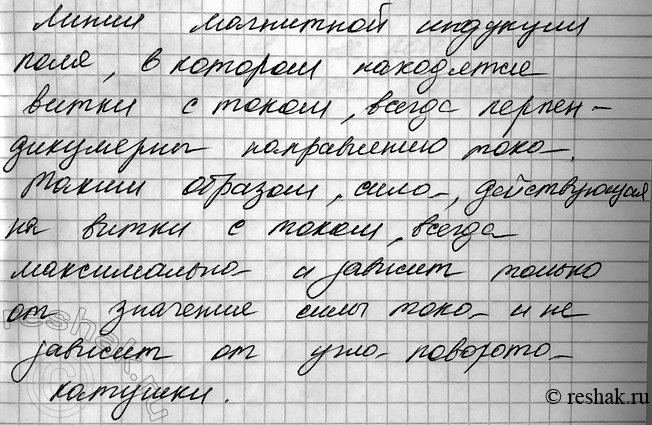 Линии магнитной индукции
поля, в котором находятся
витки с током, всегда перпен-
дикулярны направлению тока.
Таким образом, сила, действующая
на витки с током, всегда
максимальна и зависит только
от значения силы тока и не
зависит от угла поворота
катушки.
reshak.ru
© reshak.ru